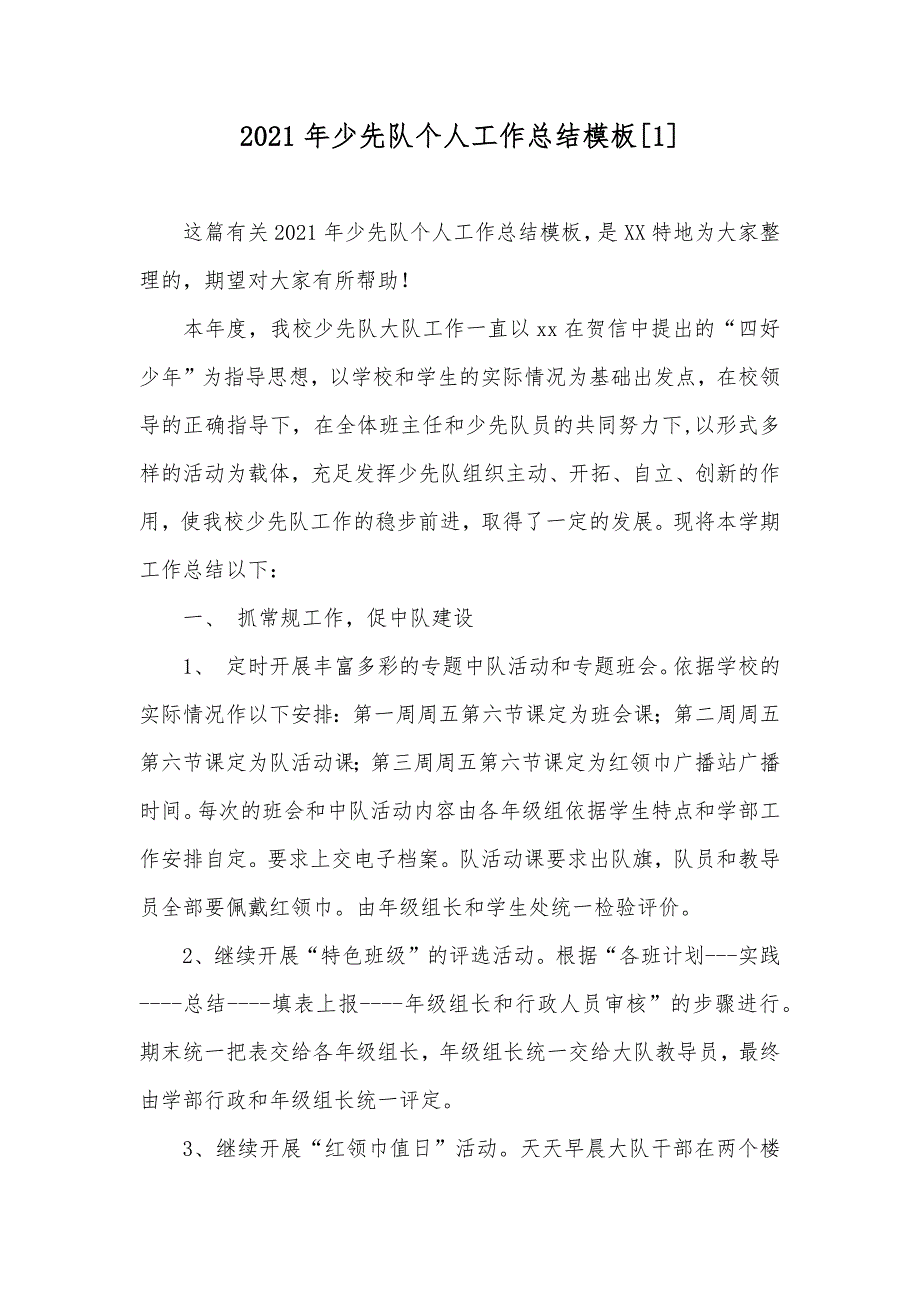 2021年少先队个人工作总结模板[1]
这篇有关2021年少先队个人工作总结模板，是XX特地为大家整
理的，期望对大家有所帮助！
本年度，我校少先队大队工作一直以xx在贺信中提出的“四好
少年”为指导思想，以学校和学生的实际情况为基础出发点，在校领
导的正确指导下，在全体班主任和少先队员的共同努力下,以形式多
样的活动为载体，充足发挥少先队组织主动、开拓、自立、创新的作
用，使我校少先队工作的稳步前进，取得了一定的发展。现将本学期
工作总结以下：
一、 抓常规工作，促中队建设
1、 定时开展丰富多彩的专题中队活动和专题班会。依据学校的
实际情况作以下安排：第一周周五第六节课定为班会课；第二周周五
第六节课定为队活动课；第三周周五第六节课定为红领巾广播站广播
时间。每次的班会和中队活动内容由各年级组依据学生特点和学部工
作安排自定。要求上交电子档案。队活动课要求出队旗，队员和教导
员全部要佩戴红领巾。由年级组长和学生处统一检验评价。
2、继续开展“特色班级”的评选活动。根据“各班计划---实践
----总结----填表上报----年级组长和行政人员审核”的步骤进行。
期末统一把表交给各年级组长，年级组长统一交给大队教导员，最终
由学部行政和年级组长统一评定。
3、继续开展“红领巾值日”活动。天天早晨大队干部在两个楼